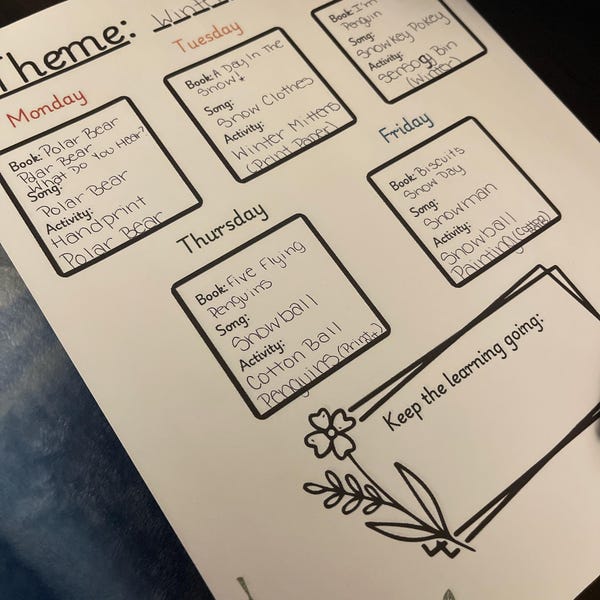 Theme:
Monday
Book: Polar Bear
Polar Bear
What Do You Hear?
Song:
Polar Bear
Activity:
Handprint
Polar Bear
Tuesday
Book: A Day In The
Snow!
Song:
Snow Clothes
Activity:
Winter Mittens
(Print Paper
Book: I'm
Penguin
Song:
Snowkey Pokey
Activity:
Sensory Bin
(Winter)
Thursday
Book: Five Flying
Penguins
Song:
Snowball
Activity:
Cotton Ball
Penguins (Print)
Friday
Book: Biscuits
Snow Day
Song:
Snowman
Activity:
Snowball
Painting
Keep the learning going: